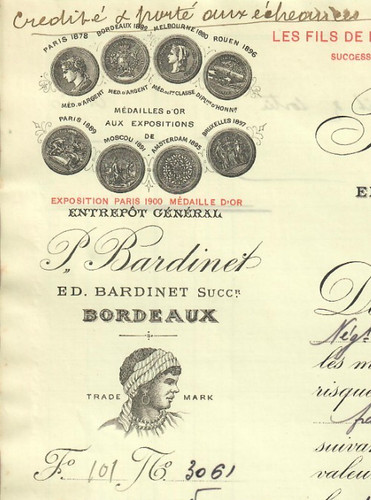 Credité & porté aux échéances
LES FILS DE
SUCCESS
PARIS 1878
BORDEAUX 1882
MELBOURNE 1880
ROUEN 1896
MÉD. D'ARGENT
MÉD. D'ARGENT
MÉD. DE 1ère CLASSE
DIPL. D'HONNr.
MÉDAILLES D'OR
AUX EXPOSITIONS
DE
PARIS 1889
MOSCOU 1891
AMSTERDAM 1895
BRUXELLES 1897
EXPOSITION PARIS 1900 MÉDAILLE D'OR
ENTREPÔT GÉNÉRAL
P. Bardinet
ED. BARDINET SUCCR.
BORDEAUX
TRADE MARK
Négt
les m
risque
suivan
valeu
Fo. 101 No. 3061